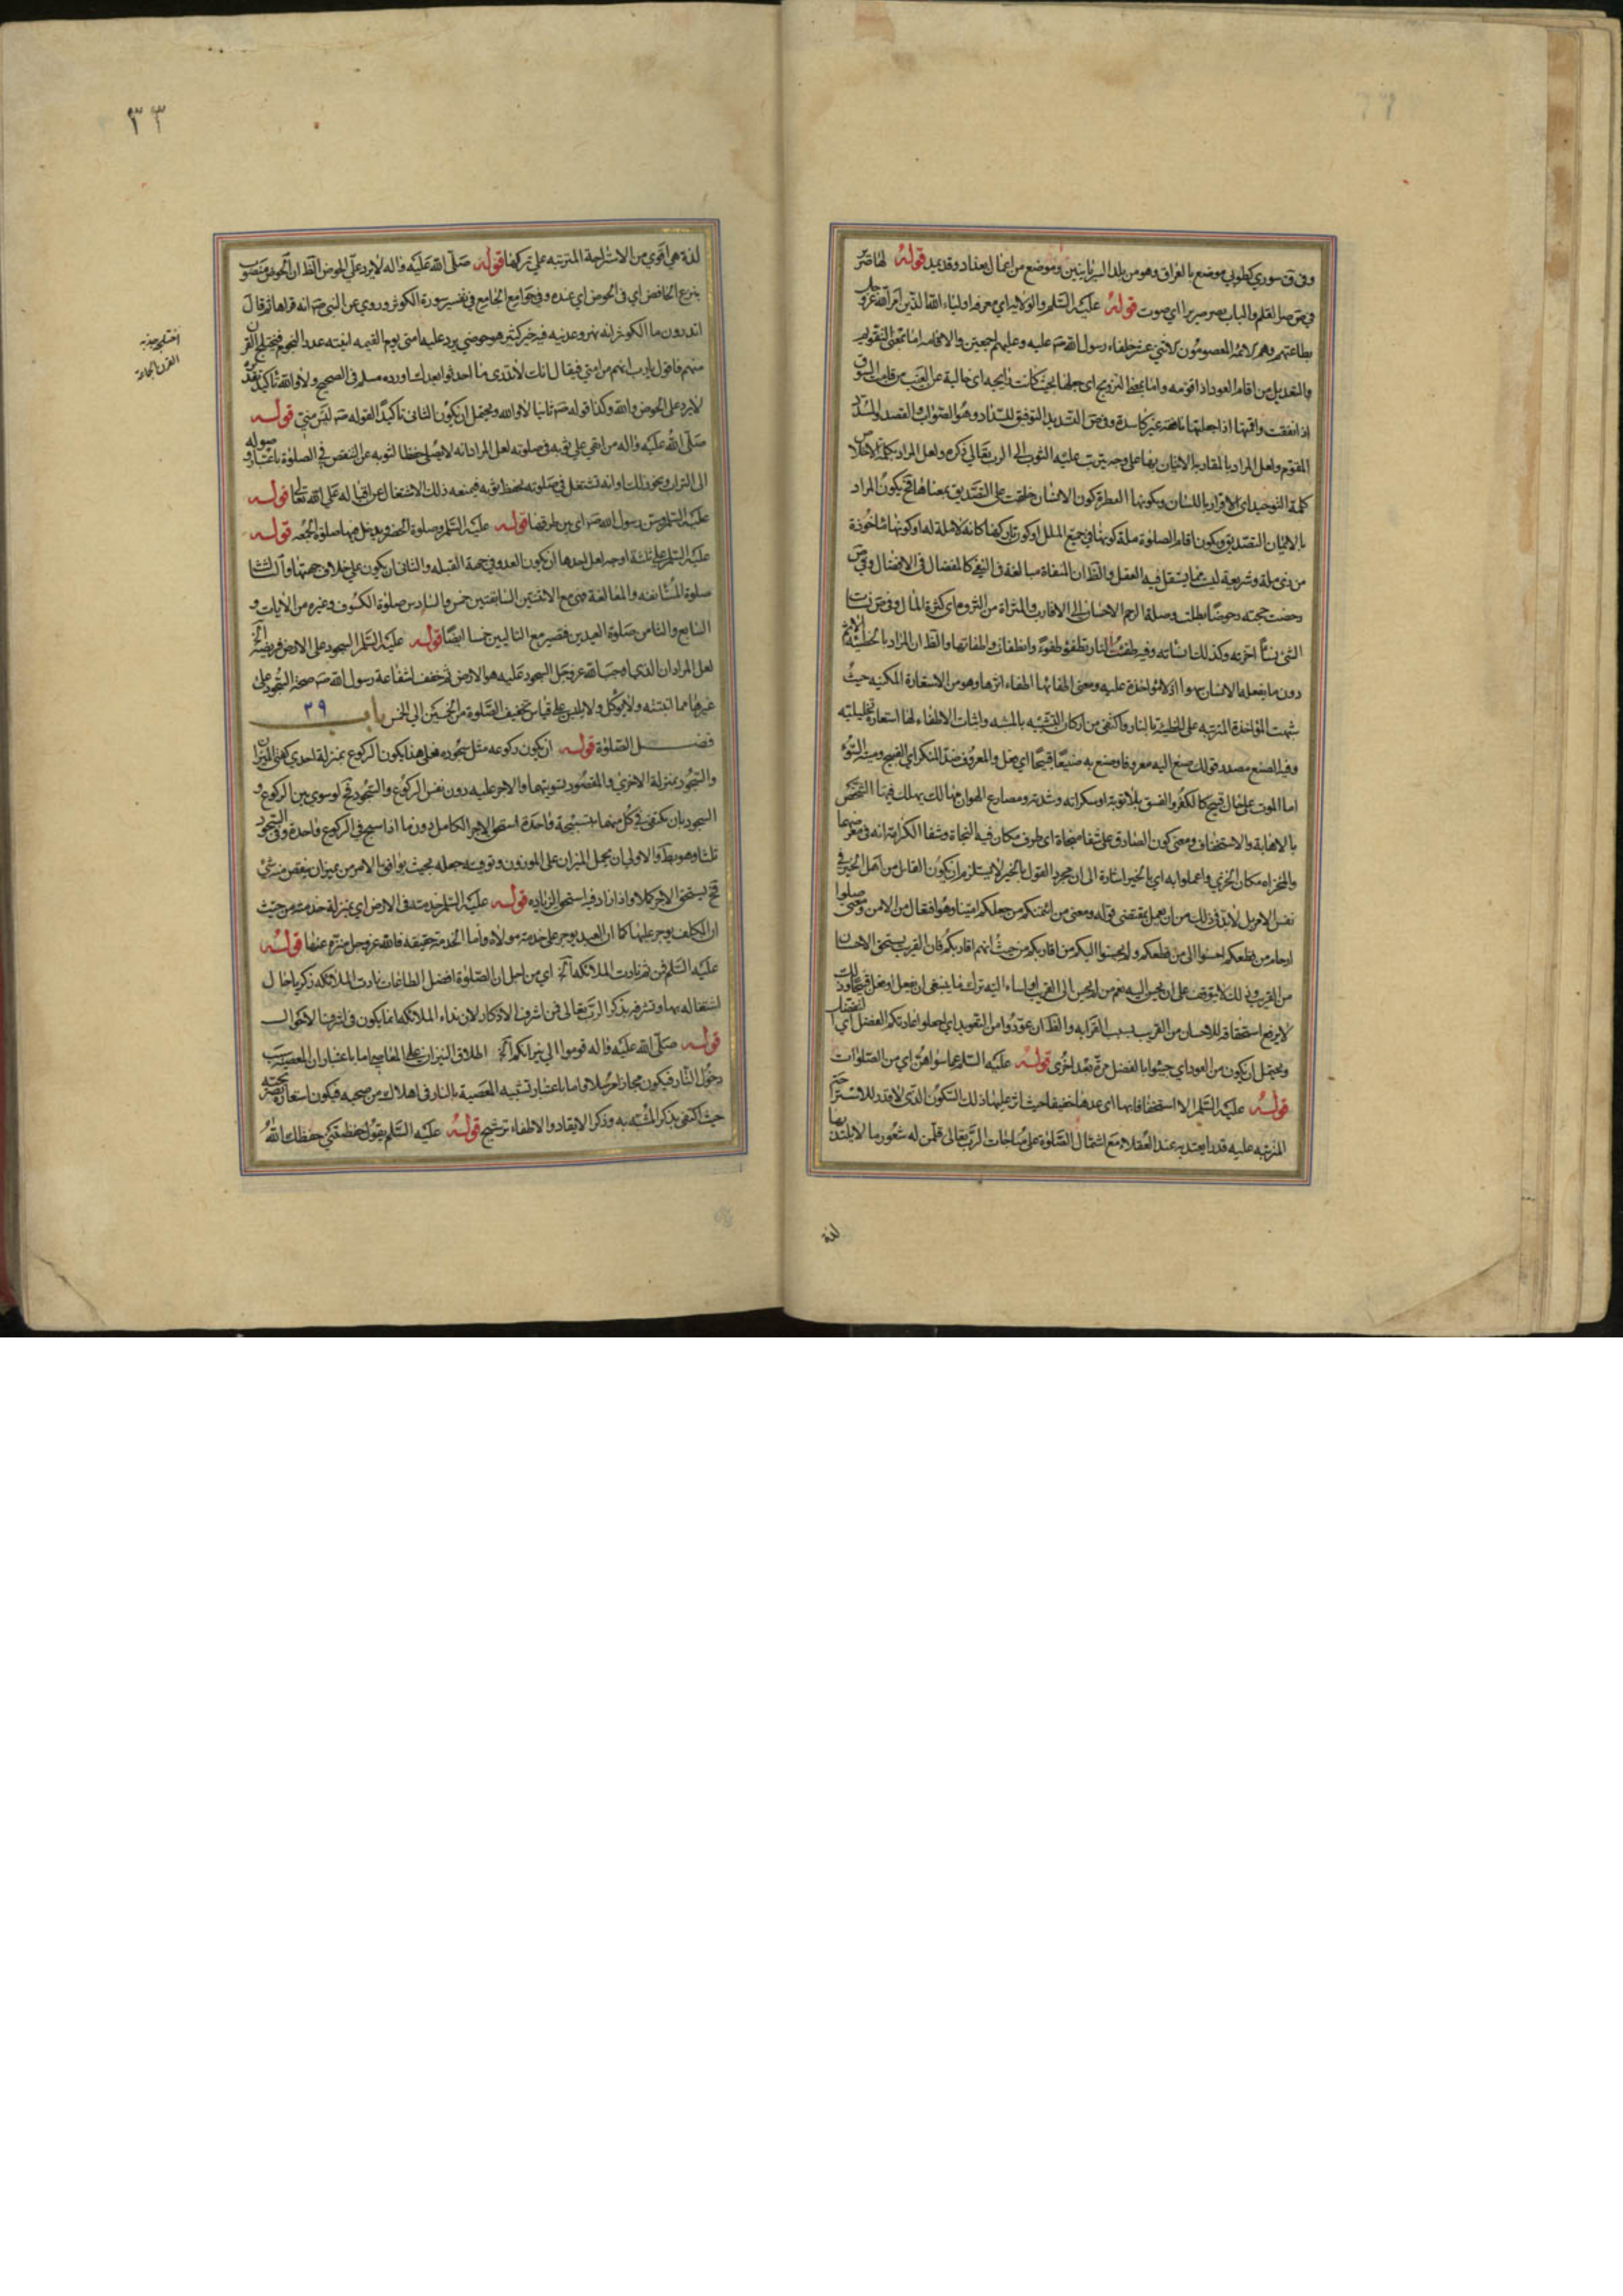 وفى ق سورى كطوبى موضع بالعراق وهو من بلد السريانيين وموضع من اعمال بغداد وقد يمد قوله لها صر
فى ص صر القلم والباب يصر صريرا اى صوت قوله عليه السلم والولاية اى معرفة اولياء الله الذين امر الله عز وجل
بطاعتهم وهم الائمة المعصومون الاثنى عشر خلفاء رسول الله صه عليه وعليهم اجمعين والاقامة اما بمعنى التقويم
والتعديل من اقام العود اذا قومه واما بمعنى الترويج اى جعلها بحيث كانت رايجة اى خالية عن العيب من قامت السوق
اذا نفقت واقمتها اذا جعلتها نافقة غير كاسدة وفى ص التسديد التوفيق للسداد وهو الصواب والقصد والمسدد
المقوم ولعل المراد بالمقاربة الاتيان بها على وجه يترتب عليه الثوب الى الرب تعالى ذكره ولعل المراد بكلمة الاخلاص
كلمة التوحيد اى الاقرار باللسان وبكونها الفطرة كون الانسان خلقت على التصديق بمعناها فح يكون المراد
بالايمان التصديق وبكون اقام الصلوة ملة كونها فى جميع الملل او كون تاركها كانه لا ملة له او كونها ماخوذة
من ذى ملة وشريعة ليست مما يستقل فيه العقل والظ ان المنفاة مبالغة فى النفى كالمفضال فى الافضال وفى ص
دحضت حجته دحوضا بطلت وصلة الرحم الاحسان الى الاقارب والمثراة من الثروة اى كثرة المال وفى ص نسات
الشئ نسأ اخرته وكذلك انسأته وفيه طفئت النار تطفؤ طفوءً وانطفات واطفاتها والظ ان المراد بالخطيئة الاثم
دون ما يفعله الانسان سهوا اذ لا مؤاخذة عليه ومعنى اطفائها اطفاء اثرها وهو من الاستعارة المكنيه حيث
شبهت المؤاخذة المترتبه على الخطيئة بالنار واكتفى من اركان التشبيه بالمشبه واثبات الاطفاء لها استعارة تخييليته
وفيه الصنع مصدر قولك صنع اليه معروفا وصنع به صنيعا قبيحا اى فعل والمعروف ضد المنكر اى القبيح وميتة السوء
اما الموت على حال قبيح كالكفر والفسق بلا توبة او سكراته وشدته ومصارع الهوان مهالك يهلك فيها الشخص
بالاهانة والاستخفاف ومعنى كون الصادق على شفا منجاة اى طرف مكان فيه النجاة وشفا الكرامة انه فى معرضهما
والمخزاة مكان الخزى واعملوا به اى بالخير اشارة الى ان مجرد القول بالخير لا يستلزم ان يكون القائل من اهل الخير فى
نفس الامر بل لابد فى ذلك من ان يعمل بمقتضى قوله ومعنى من ائتمنكم من جعلكم امينا وهو افتعال من الامن ومعنى صلوا
ارحام من قطعكم احسنوا الى من قطعكم ولم يحسنوا اليكم من اقاربكم من حيث انهم اقاربكم فان القريب يستحق الاحسان
من القريب وذلك لا يتوقف على ان يحسن اليه نعم من لم يحسن الى القريب او اساء اليه ترك ما ينبغى ان يفعل او فعل قبيحا وذلك
لا يرفع استحقاقه للاحسان من القريب بسبب القرابه والظ ان عودوا من التعويد اى اجعلوا عادتكم الفضل اى التفضل
ويحتمل ان يكون من العود اى جيئوا بالفضل مرة بعد اخرى قوله عليه السلم عما سواهن اى من الصلوات
قوله عليه السلم الا استخفافا بها اى عدها خفيفا حيث اثر عليها ذلك السكون الذى لا قدر للاستراحة
المترتبه عليه قدرا يعتد به عند العقلاء مع اشتمال الصلوة على مناجات الرب تعالى فلمن له شعور ما الا يلتذ بها
لذة
٣٣
لذة هى اقوى من الاستراحة المترتبه على تركها قوله صلى الله عليه واله لا يرد على الحوض الظ ان الحوض منصوب
بنزع الخافض اى فى الحوض اى عنده وفى جوامع الجامع فى تفسير سورة الكوثر وروى عن النبى صه انه قراها ثم قال
اتدرون ما الكوثر انه نهر وعدنيه فيه خير كثير هو حوضى يرد عليه امتى يوم القيمه انيته عدد النجوم فيختلج القرن
منهم فاقول يا رب انهم من امتى فيقال انك لا تدرى ما احدثوا بعدك اورده مسلم فى الصحيح ولا والله تاكيد
لا يرد على الحوض والله وكذا قوله صه ثانيا لا والله ويحتمل ان يكون الثانى تاكيدا لقوله صه ليس منى قوله
صلى الله عليه واله من اتقى على ثوبه فى صلوته لعل المراد انه لا يصلى حفظا لثوبه عن النقص فى الصلوة باعتبار وصوله
الى التراب ونحو ذلك او انه تشتغل فى صلوته بحفظ ثوبه فيمنعه ذلك الاشتغال عن اقباله على الله تعالى قوله
عليه السلم وسن رسول الله صه اى بين طرقها قوله عليه السلم وصلوة الحضر ويدخل فيها صلوة الجمعه قوله
عليه السلم على ثلثة اوجه لعل احدها ان يكون العدو فى جهة القبله والثانى ان يكون على خلاف جهتها والثالث
صلوة المسايفه والمعانقة فهى مع الاثنتين السابقتين خمس والسادس صلوة الكسوف وغيره من الايات و
السابع والثامن صلوة العيدين فتصير مع التاليين خمسا ايضا قوله عليه السلم السجود على الارض فريضة الخ
لعل المراد ان الذى اوجب الله عز وجل السجود عليه هو الارض ثم خفف بشفاعة رسول الله صه صحة السجود على
غيرها مما انبتته ولا يؤكل ولا يلبس على قياس تخفيف الصلوة من الخمسين الى الخمس باب ٣٩
فضل الصلوة قوله ان يكون ركوعه مثل سجوده فعلى هذا يكون الركوع بمنزلة احدى كفتى الميزان
والسجود بمنزلة الاخرى والمقصود تسويتهما والاجر عليه دون نفس الركوع والسجود فح لو سوى بين الركوع و
السجود بان يكتفى فى كل منهما بتسبيحة واحدة استحق الاجر الكامل دون ما اذا سبح فى الركوع واحدة وفى السجود
ثلثا وهو بعيد والاولى ان يحمل الميزان على الموزون وتوفيته جعله بحيث يوافق بالامر من غير ان ينقص منه شئ
فح يستحق الاجر كملا واذا زاد فيه استحق الزياده قوله عليه السلم خدمته فى الارض اى بمنزلة خدمته من حيث
ان المكلف يوجر عليها كما ان العبد يوجر على خدمته مولاه واما الخدمة حقيقه فالله عز وجل منزه عنها قوله
عليه السلم فمن ثم نادت الملائكة الخ اى من اجل ان الصلوة افضل الطاعات نادت الملائكه زكريا حال
اشتغاله بها وتشرفه بذكر الرب تعالى فمن اشرف الاذكار لان نداء الملائكه انما يكون فى اشرف الاحوال
قوله صلى الله عليه واله قوموا الى نيرانكم الخ اطلاق النيران على المعاصى اما باعتبار ان المعصيه سبب
دخول النار فيكون مجازا مرسلا واما باعتبار تشبيه المعصية بالنار فى اهلاك من صحبه فيكون استعارة مصرحة
حيث اكتفى بذكر المشبه به وذكر الايقاد والاطفاء ترشيح قوله عليه السلم يقول حفظتنى حفظك الله